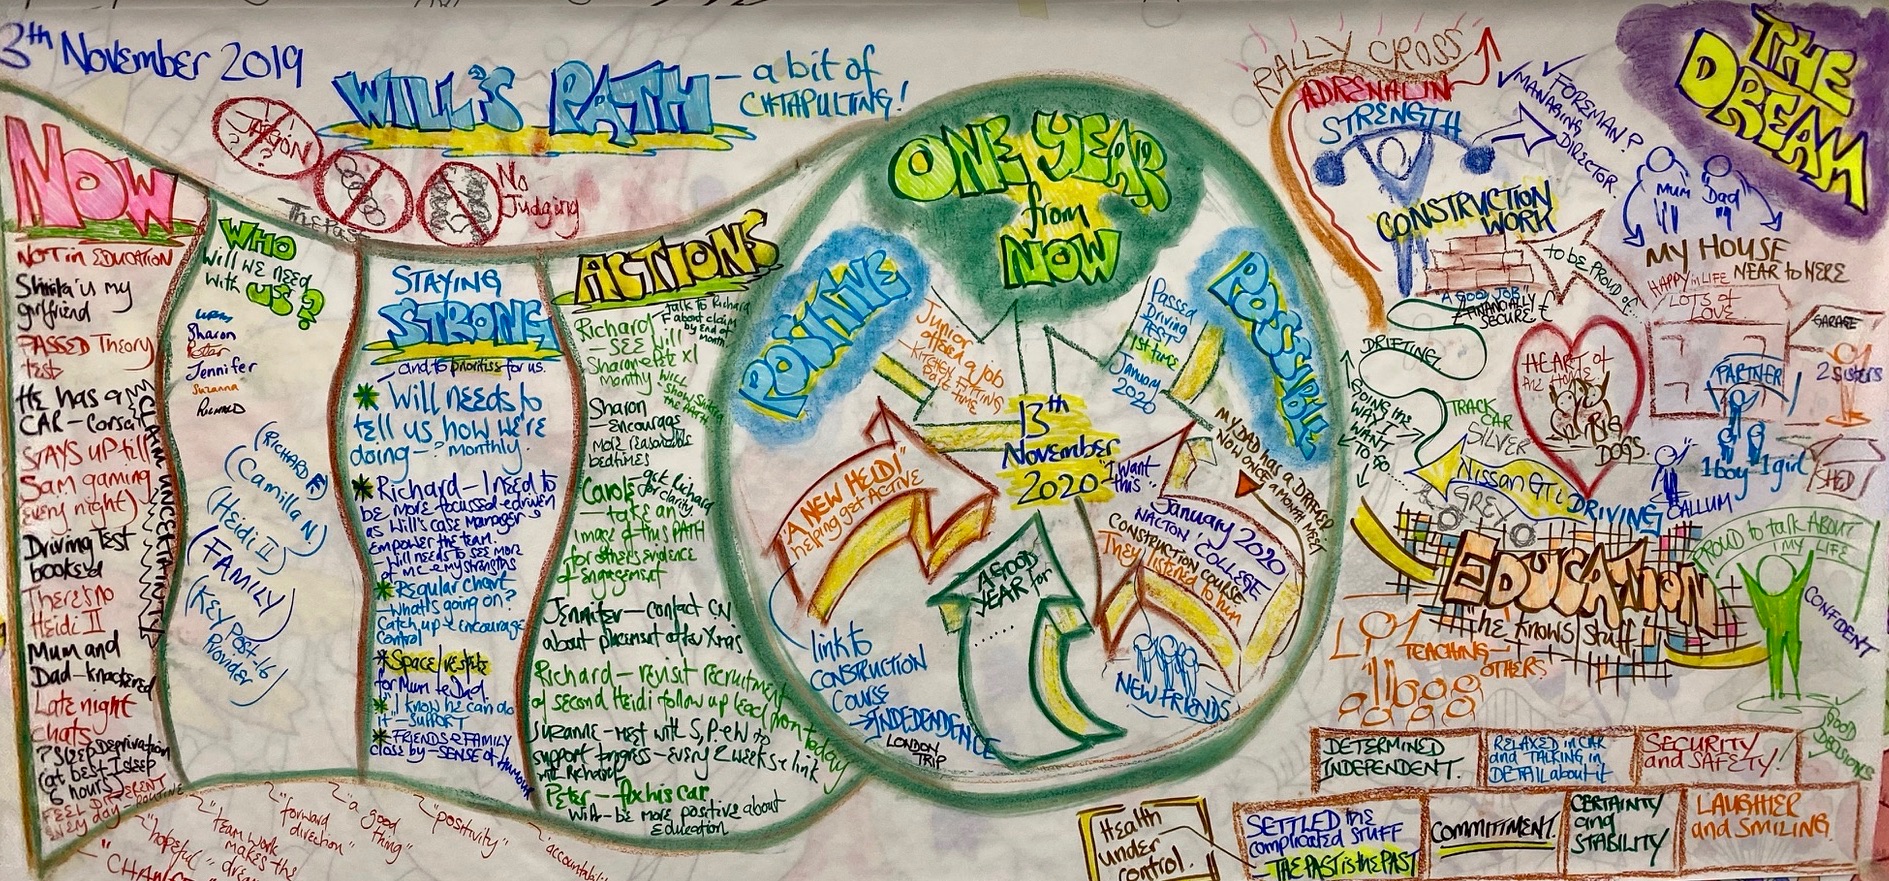 3th November 2019
WILL'S PATH
- a bit of
CATAPULTING!
No
Judging
NOW
NOT in EDUCATION
my
girlfriend
PASSED Theory
test
He has a
CAR - Corsa
STAYS UP till
5am gaming
every night)
Driving Test
booked
There's no
Heidi II
Mum and
Dad - knackered
Late night
chats
? Sleep Deprivation
(at best I sleep
6 hours)
FEEL DIFFERENT
every day - ROUTINE
CLAIM UNCERTAINTY
WHO
Will we need
with US?
Sharon
Peter
Jennifer
Suzanna
Richard
(RICHARD F)
(Camilla N)
(Heidi II)
(FAMILY)
(Key Post-16
Provider)
STAYING
STRONG
- and to prioritise for us.
Will needs to
tell us how we're
doing - ? monthly.
Richard - I need to
be more focussed + driven
as Will's case manager
Empower the team.
Will needs to see more
of me + my strengths
Regular chart
- what's going on?
Catch up + encourage
control
Space/respite
for Mum + Dad.
"I know he can do
it" - SUPPORT
FRIENDS & FAMILY
close by - SENSE of HUMOUR
ACTIONS
Richard
- talk to Richard
F about claim
by end of
month
- SEE Will
monthly
Sharon
- encourage
more reasonable
bedtimes
Carole
- get Richard
for clarity
- take an
image of this PATH
for others evidence
of engagement
Jennifer - contact CN
about placement after Xmas
Richard - revisit recruitment
of second Heidi follow up lead from today
Suzanne - meet with S, P + W to
support progress - every 2 weeks + link
with Richard
Peter - fix his car
Will - be more positive about
Education
ONE YEAR
from
NOW
POSITIVE
POSSIBLE
Junior
offered a job
- KITCHEN FITTING
Part TIME
Passed
Driving
TEST
1st time
January
2020
13th
November
2020
"I want
this"
MY DAD HAS A DRAGGED
NOW ONCE A MONTH MEET
"A NEW HEIDI"
helping get ACTIVE
January 2020
NACTON 'COLLEGE'
CONSTRUCTION COURSE
They listened to him
A GOOD
YEAR for
........
link to
CONSTRUCTION
COURSE
INDEPENDENCE
LONDON
TRIP
NEW FRIENDS
THE
DREAM
RALLY CROSS
ADRENALIN
STRENGTH
FOREMAN?
MANAGING
DIRECTOR.
Mum
Dad
CONSTRUCTION
WORK
TO BE PROUD of...
A GOOD JOB
FINANCIALLY
SECURE
MY HOUSE
NEAR to HERE
HAPPY in LIFE
LOTS of
LOVE
GARAGE
2 sisters
PARTNER
1 boy
1 girl
SHED
CALLUM
HEART of
the Home
BIG
DOGS.
DRIFTING
GOING the
WAY I
WANT
TO GO.
TRACK
CAR
SILVER
Nissan GTi
GREY
DRIVING
EDUCATION
"he knows stuff"
TEACHING
OTHERS
PROUD to talk ABOUT
MY LIFE
CONFIDENT
GOOD
DECISIONS
DETERMINED
INDEPENDENT.
RELAXED in CAR
and TALKING in
DETAIL about it
SECURITY
and SAFETY!
Health
under
control.
SETTLED the
complicated STUFF
- THE PAST is the PAST
COMMITMENT.
CERTAINTY
and
STABILITY
LAUGHTER
and SMILING
"hopeful"
"team work
makes the
"forward
direction"
"a good
thing"
"positivity"